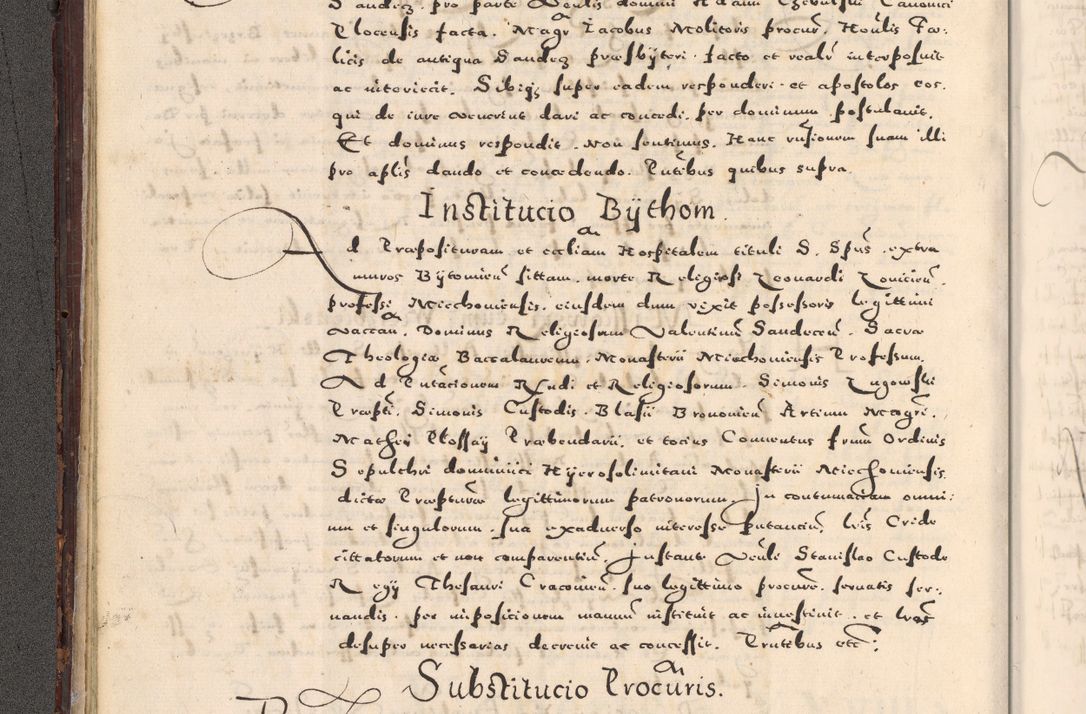 Sandecz. pro parte Venlis domini Adam
Plocensis facta. Magr Iacobus Molitoris procur. Honlis Foe:
licis de antiqua Sandecz præsbÿteri. facto et realr interposuit
ac interiecit. Sibiqz super eadem responderi. et apostolos eos.
qui de iure venerint dari ac concedi. per dominum postulauit.
Et dominus respondit. Non sentimus. Hanc rnsionem suam illi
pro aplis dando et concedendo. Pntibus quibus supra.
Institucio Bÿthom.
Ad Præposituram et eccliam Hospitalem tituli S. Spus. extra
muros Bÿtomien sittam. morte Religiosi Leonardi Louicien.
professi Miechouiensis. eiusdem dum vixit possessoris legittimi
vaccan. Dominus Religiosum Valentinum Sandecen. Sacræ
Theologiæ Baccalaureum. Monasterii Miechouiensis Professum.
Ad Pntacionem Rndi et Religiosorum. Simonis Lugowski
Præpti. Simonis Custodis. Blasii Bronouien Artium Magri.
Mathei Præbendarii. et tocius Conuentus frum Ordinis
Sepulchri dominici Hÿerosolimitani Monasterii Miechouiensis.
dictæ Præpturæ legittimorum patronorum. In contumaciam omni:
um et singulorum. sua exaduerso interesse putancium. lris Cride
cittatorum et non comparentium. Instante Venli Stanislao Custode
Regÿ Thesauri Cracouien. suo legittimo procure. seruatis ser:
uandis. per imposicionem manuum instituit ac inuestiuit. et lras
desuper necessarias decreuit ac concessit. Pntibus etc.
Substitucio Procuris.